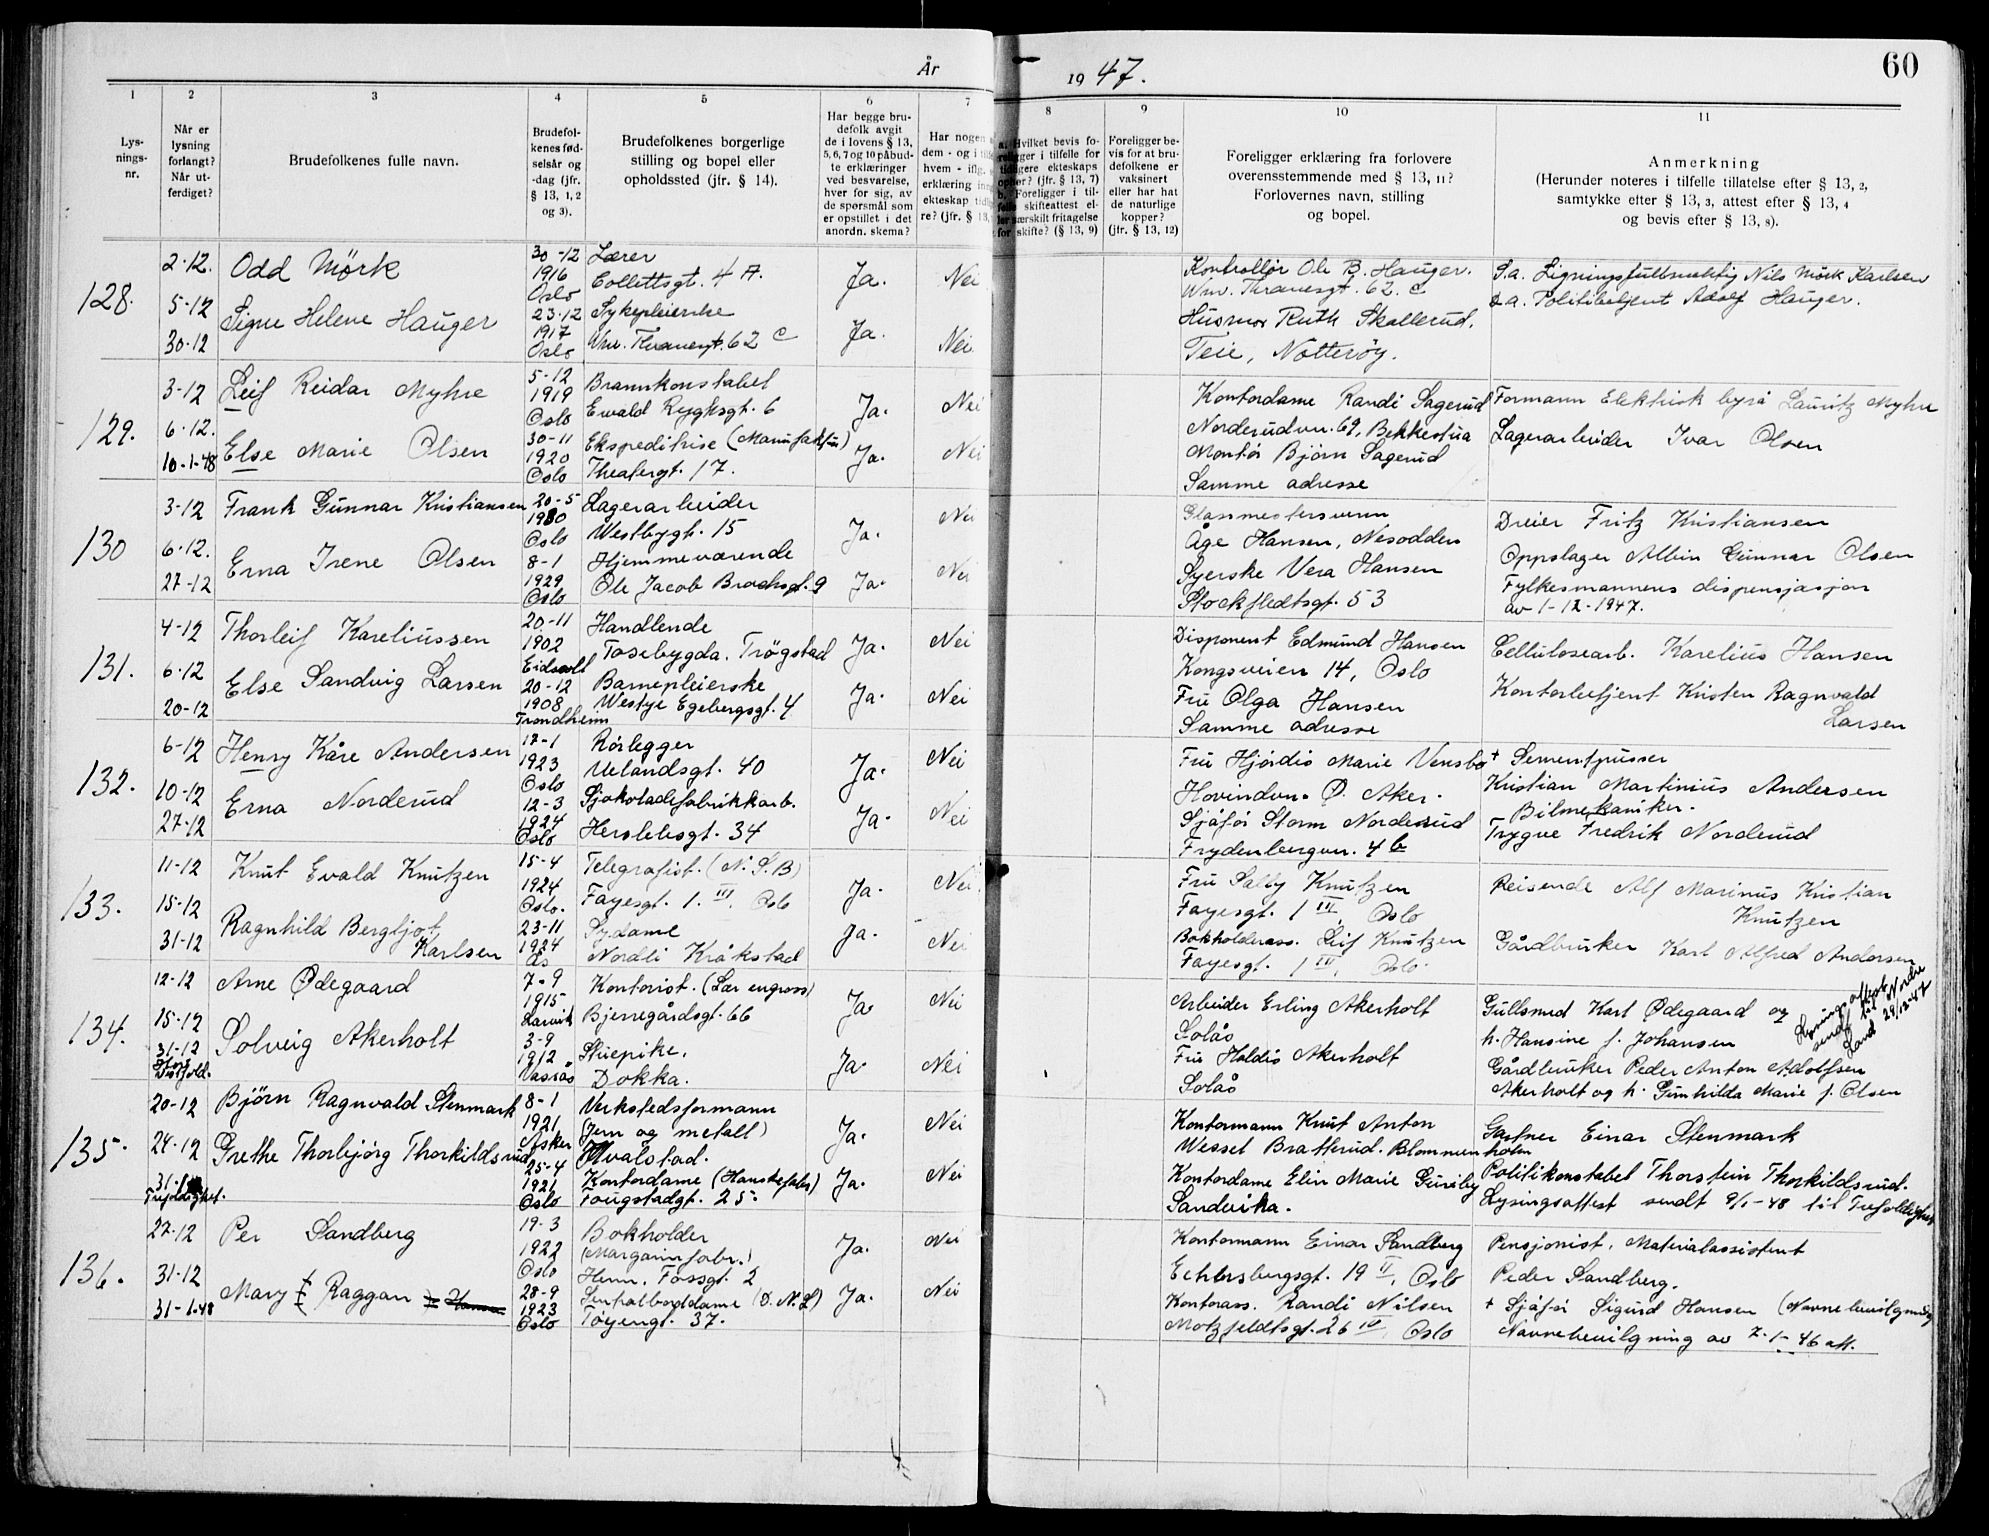 År 1947.
60
1 2 3 4 5 6 7 8 9 10 11
Lys-
nings-
nr.
Når er
lysning
forlangt?
Når ut-
ferdiget?
Brudefolkenes fulle navn.
Brudefol-
kenes fød-
selsår og
-dag (jfr.
§ 13, 1, 2
og 3).
Brudefolkenes borgerlige
stilling og bopel eller
opholdssted (jfr. § 14).
Har begge bru-
defolk avgit
de i lovens § 13,
5, 6, 7 og 10 påbud-
te erklæringer
ved besvarelse,
hver for sig, av
de spørsmål som
er opstillet i det
anordn. skema?
Har nogen
dem - og i
hvem - iflg.
erklæring
ekteskap
re? (jfr. § 13,
a. Hvilket bevis fo-
religger i tilfelle for
tidligere ekteskaps
ophør? (jfr. § 13, 7)
b. Foreligger i til-
felle skifteattest el-
ler særskilt fritagelse
for skifte? (§ 13, 9)
Foreligger be-
vis for at bru-
defolkene er
vaksinert
eller har hat
de naturlige
kopper?
(jfr. § 13, 12)
Foreligger erklæring fra forlovere
overensstemmende med § 13, 11?
Forlovernes navn, stilling
og bopel.
Anmerkning
(Herunder noteres i tilfelle tillatelse efter § 13, 2,
samtykke efter § 13, 3, attest efter § 13, 4
og bevis efter § 13, 8).
128.
2-12.
5-12
30-12
Odd Mørk
Signe Helene Hauger
30-12
1916
Oslo
23-12
1917
Oslo
Lærer
Collettsgt. 4 A.
Sykepleierske
Wm. Thranesgt. 62 c
Ja.
Ja.
Nei
Nei
Kontrollør Ole B. Hauger.
Wm. Thranesgt. 62. c
Husmor Ruth Skallerud,
Teie, Nøtterøy.
S.a. Ligningsfullmektig Nils Mørk Karlsen
d.a. Politibetjent Adolf Hauger.
129.
3-12
6-12.
10-1-48
Leif Reidar Myhre
Else Marie Olsen
5-12
1919
Oslo
30-11
1920
Oslo
Brannkonstabel
Ewald Ryghsgt. 6
Ekspeditrise (Manufaktur)
Theatergt. 17.
Ja.
Ja.
Nei
Nei
Kontordame Randi Sagerud
Norderudvn. 69, Bekkestua
Montør Bjørn Sagerud
Samme adresse
Formann Elektrisk byrå Lauritz Myhre
Lagerarbeider Ivar Olsen
130
3-12
6-12.
27-12
Frank Gunnar Kristiansen
Erna Irene Olsen
20-5
1930
Oslo
8-1
1929
Oslo
Lagerarbeider
Westbygt. 15
Hjemmeværende
Ole Jacob Brochsgt. 9
Ja.
Ja.
Nei
Nei
Glassmestersvenn
Åge Hansen, Nesodden
Syerske Vera Hansen
Stockfledtsgt. 53
Dreier Fritz Kristiansen
Oppslager Albin Gunnar Olsen
Fylkesmannens dispensjasjon
av 1-12-1947.
131.
4-12
6-12
20-12
Thorleif Kareliussen
Else Sandvig Larsen
20-11
1902
Eidsvoll
20-12
1908
Trondheim
Handlende
Tosebygda, Trøgstad
Barnepleierske
Westye Egebergsgt. 4
Ja.
Ja.
Nei
Nei
Disponent Edmund Hansen
Kongsveien 14, Oslo
Fru Olga Hansen
Samme adresse
Cellulosearb. Karelius Hansen
Kontorbetjent Kristen Ragnvald
Larsen
132.
6-12
10-12
27-12
Henry Kåre Andersen
Erna Norderud
17-1
1923
Oslo
12-3
1924
Oslo
Rørlegger
Uelandsgt. 40
Sjokoladefabrikkarb.
Herslebsgt. 34
Ja.
Ja.
Nei
Nei
Fru Hjørdis Marie Vensbo
Hovindvn. Ø. Aker.
Sjåfør Storm Norderud
Frydenbergvn. 4 b
+ Sementpusser
Kristian Martinius Andersen
Bilmekaniker.
Trygve Fredrik Norderud
133.
11-12
15-12
31-12
Knut Evald Knutzen
Ragnhild Bergljot
Karlsen
15-4
1924
Oslo.
23-11
1924
Ås
Telegrafist. (N.S.B)
Fayesgt. 1. III. Oslo
Sydame
Nordli Kråkstad
Ja.
Ja.
Nei
Nei
Fru Salby Knutzen
Fayesgt. 1 III, Oslo
Bokholderass. Leif Knutzen
Fayesgt. 1 III, Oslo.
Reisende Alf Marinus Kristian
Knutzen
Gårdbruker Karl Alfred Andersen
134.
12-12
15-12
31-12
Arne Ødegaard
Solveig Akerholt
7-9
1915
Larvik
3-9
1912
Vasrås
Kontorist. (Lær engross)
Bjerregårdsgt. 66
Stuepike.
Dokka.
Ja.
Ja.
Nei
Nei
Arbeider Erling Akerholt
Solås
Fru Haldis Akerholt
Solås
Gullsmed Karl Ødegaard og
h. Hansine f. Johansen
Gårdbruker Peder Anton Adolfsen
Akerholt og h. Gunhilda Marie f. Olsen
Lysningsattest
sendt til Nordre
Land 29/12-47
135.
20-12
24-12
Trefoldighet.
Bjørn Ragnvald Stenmark
Grethe Thorbjørg Thorkildsrud
8-1
1921
Asker
25-4
1921
Oslo
Verkstedsformann
(Jern og metall)
Hvalstad.
Kontordame (Hanskefabr.)
Fougstadgt. 25.
Ja.
Ja.
Nei
Nei
Kontormann Knut Anton
Wessel Bratterud. Blommenholm
Kontordame Elin Marie Gunby
Sandvika.
Gartner Einar Stenmark
Politikonstabel Thorstein Thorkildsrud.
Lysingsattest sendt 9/1-48 til Trefoldighet
136.
27-12
31-12
31-1-48
Per Sandberg
Mary Raggan
19-3
1922
Oslo
28-9
1923
Oslo
Bokholder
(Margarinfabr.)
Herm. Fossgt. 2
Sentralborddame (D.N.L)
Tøyengt. 37.
Ja.
Ja.
Nei
Nei
Kontormann Einar Sandberg
Echtersbergsgt. 19 II, Oslo
Kontorass. Randi Nilsen
Motzfeldtsgt. 26 IV, Oslo
Pensjonist, Materialassistent
Peder Sandberg.
+ Sjåfør Sigurd Hansen (Navnebevilgning
Navnebevilgning av 7-1-46 att.